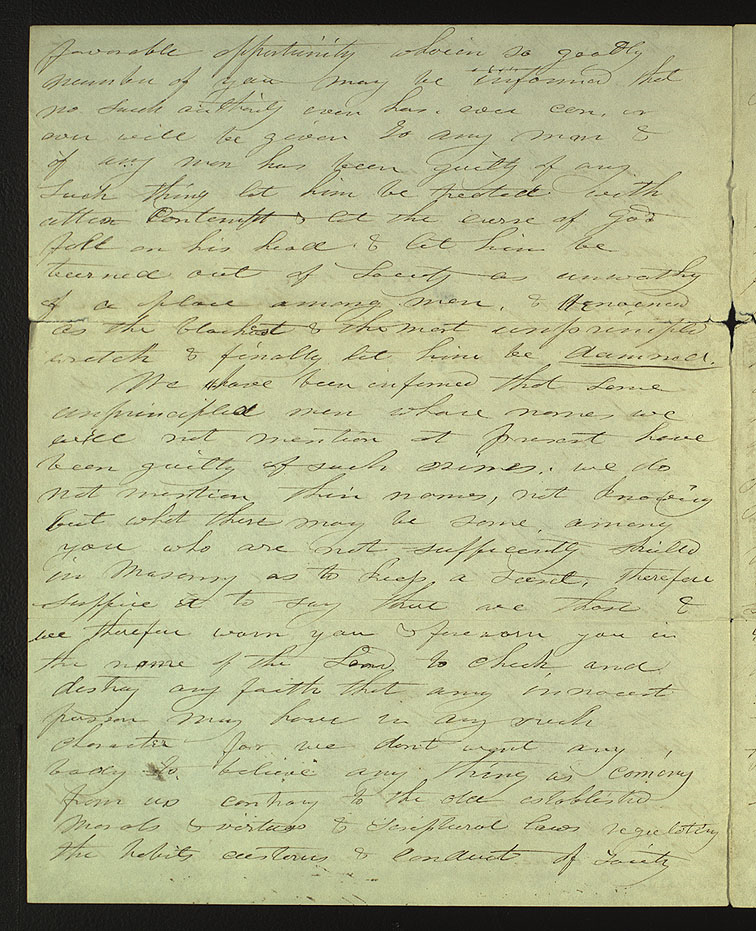 favorable opportunity wherein so goodly
number of you may be informed that
no such authority ever has, ever can, or
ever will be given to any man &
if any man has been guilty of any
such thing let him be treated with
utter contempt & let the curse of God
fall on his head & let him be
turned out of Society as unworthy
of a place among men, & denounced
as the blackest & the most unprincipled
wretch & finally let him be damned.
We have been informed that some
unprincipled men whose names we
will not mention at present have
been guilty of such crimes. we do
not mention their names, not knowing
but what there may be some among
you who are not sufficiently skilled
in Masonry as to keep a secret, therefore
suffice it to say there are those &
we therefore warn you & forewarn you in
the name of the Lord, to check and
destroy any faith that any innocent
person may have in any such
character for we dont want any
body to believe any thing as coming
from us contrary to the old established
Morals & virtues & scriptural laws regulating
the habits customs & conduct of Society